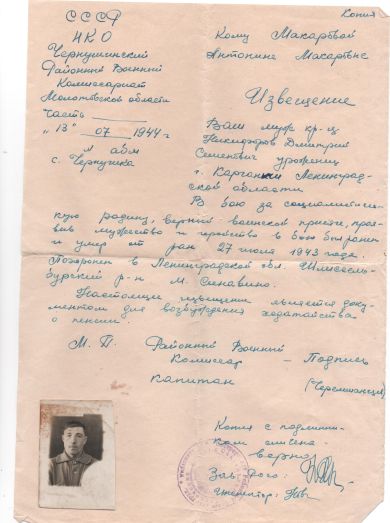 Копия
СССР
НКО
Чернушинский
Районный Военный
Комиссариат
Молотовской области
Часть
"13" 07 1944 г
с. Чернушка
Кому Макаровой
Антонине
Извещение
Ваш муж кр-ц
Никифоров Дмитрий
Семенович уроженец
г. Ленинград-
ской области
В бою за социалистичес-
кую родину, верный воинской присяге, прояв-
ив мужество и геройство в бою был ранен
и умер от ран 27 июля 1943 года.
Похоронен в Ленинградской обл.
бургский р-н М. Синавино.
Настоящее извещение является доку-
ментом для возбуждения ходатайства
о пенсии.
М. П. Районный Военный
Комиссар – Подпись
капитан
Копия с подлинни-
ком сличена
верно